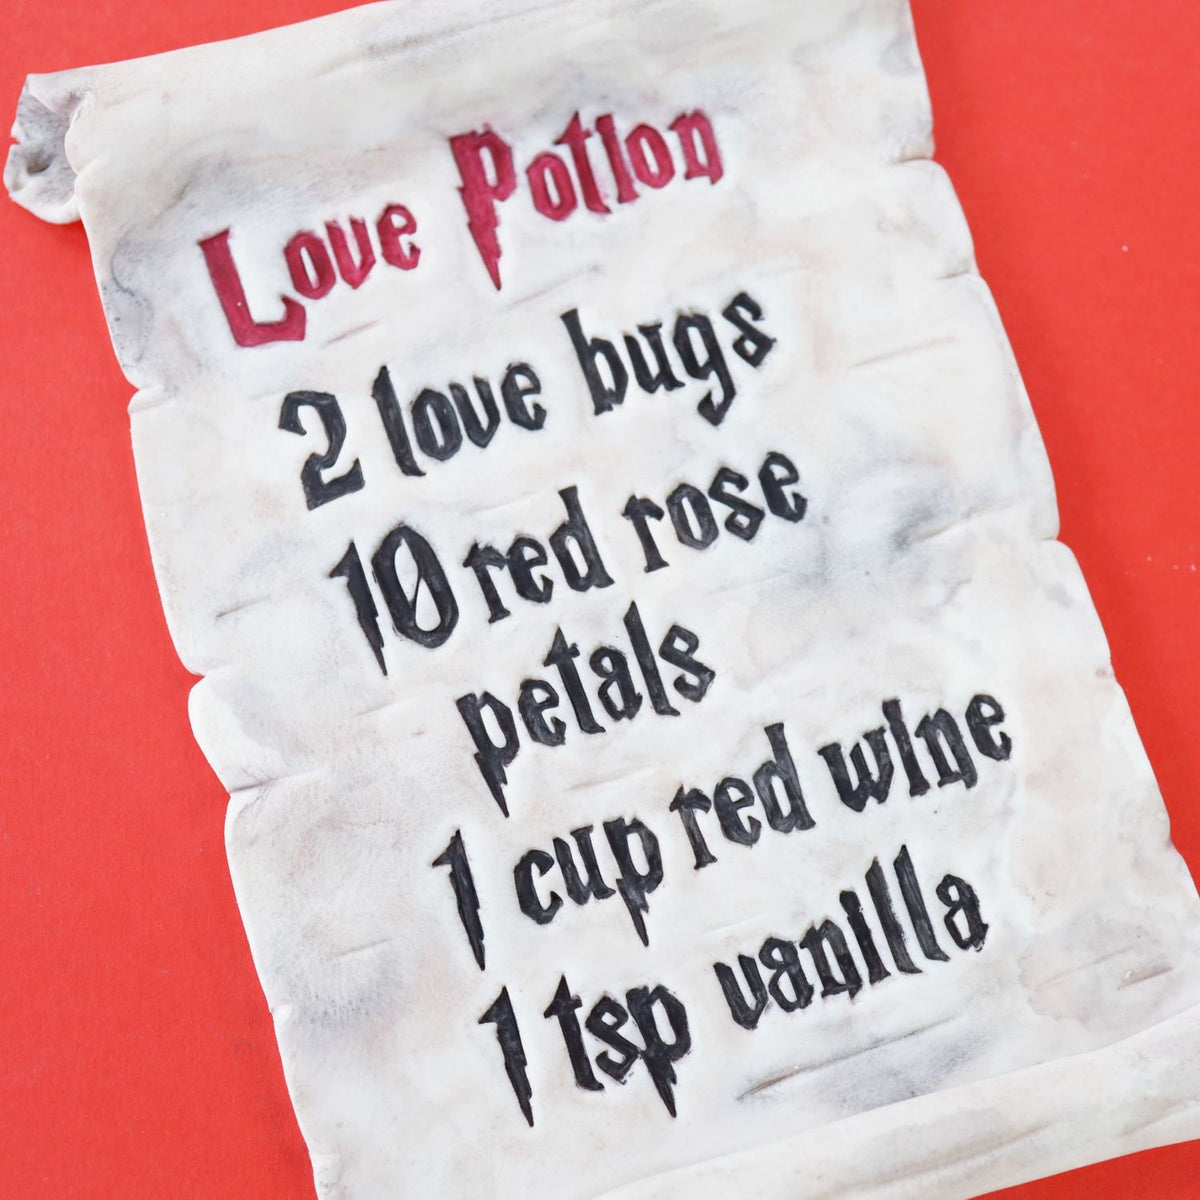 Love Potion
2 love bugs
10 red rose
petals
1 cup red wine
1 tsp vanilla